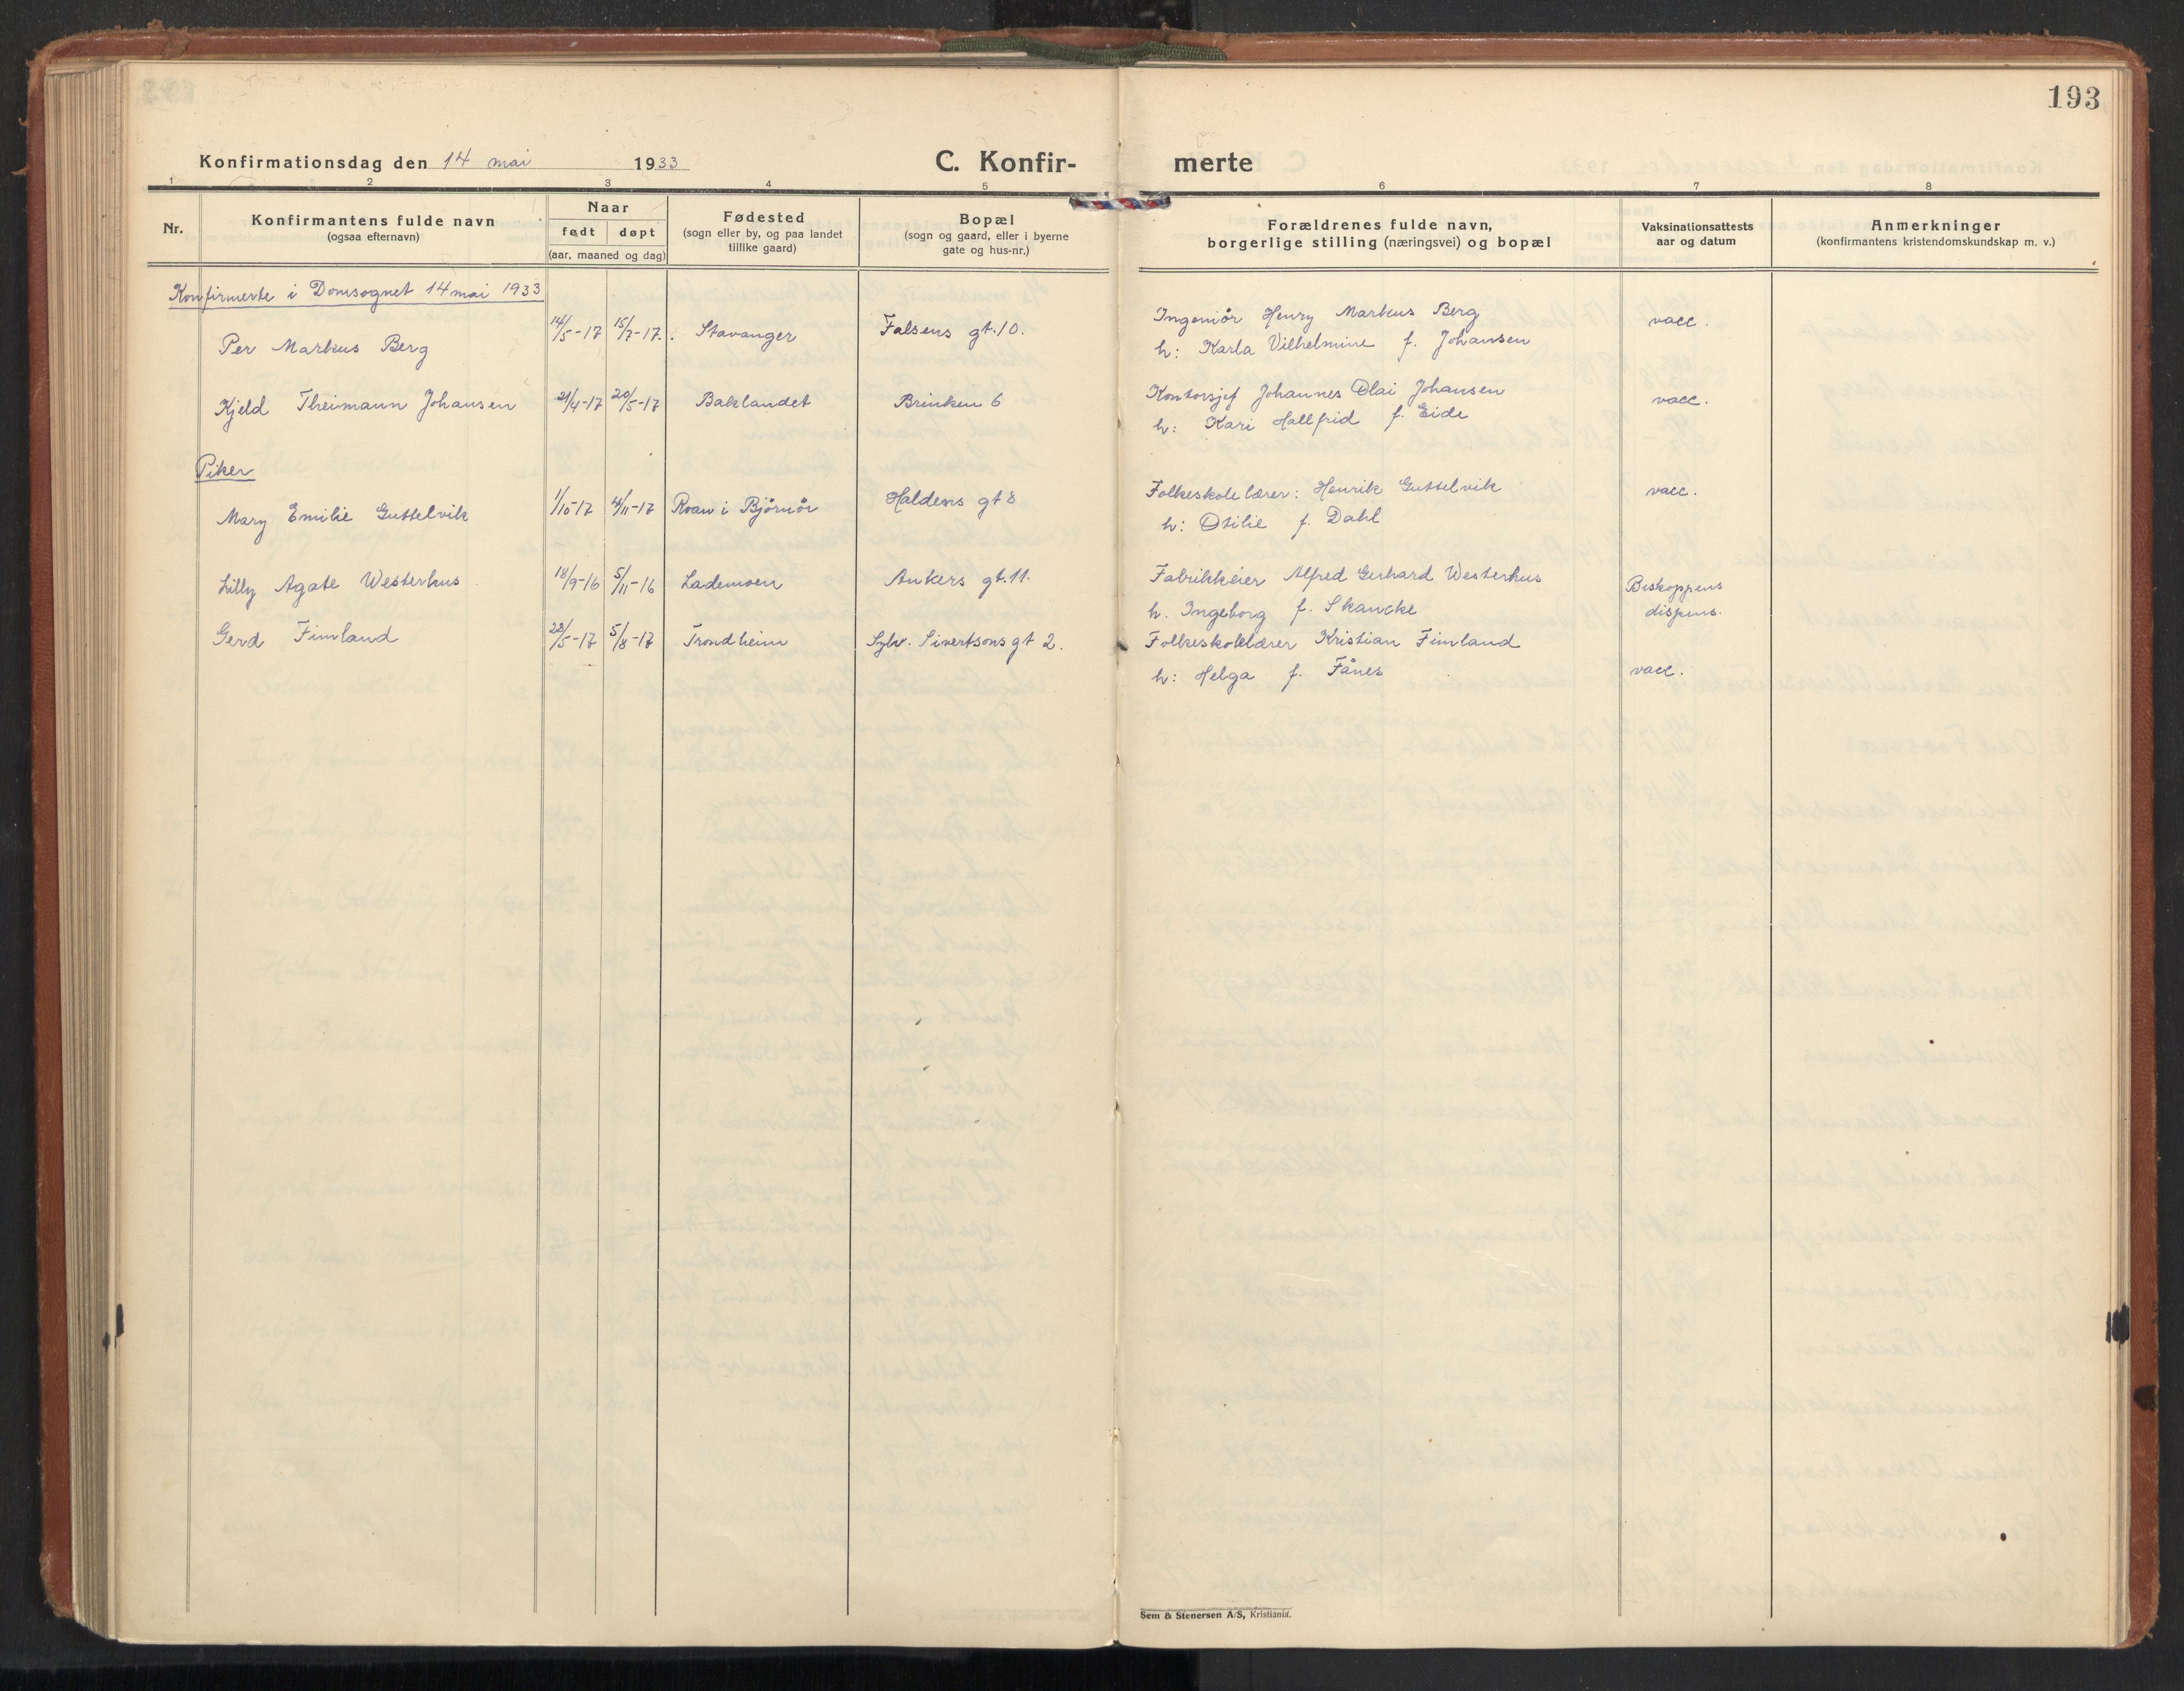 193
Konfirmationsdag den 14 mai 1933
C. Konfir- merte
1 2 3 4 5 6 7 8
Nr.
Konfirmantens fulde navn
(ogsaa efternavn)
Naar
født døpt
(aar, maaned og dag)
Fødested
(sogn eller by, og paa landet
tillike gaard)
Bopæl
(sogn og gaard, eller i byerne
gate og hus-nr.)
Forældrenes fulde navn,
borgerlige stilling (næringsvei) og bopæl
Vaksinationsattests
aar og datum
Anmerkninger
(konfirmantens kristendomskundskap m. v.)
Konfirmerte i Domsognet 14 mai 1933
Per Markus Berg 14/5-17 15/7-17. Stavanger Falsens gt. 10. Ingeniør Henry Markus Berg vacc.
h: Karla Vilhelmine f. Johansen
Kjeld Theimann Johansen 21/4-17 20/5-17 Baklandet Brinken 6 Kontorsjef Johannes Olai Johansen vacc.
h: Kari Hallfrid f. Eide
Piker
Mary Emilie Guttelvik 1/10-17 4/11-17 Roan i Bjørnør Haldens gt 8 Folkeskolelærer: Henrik Guttelvik vacc.
h: Otilie f. Dahl
Lilly Agate Westerhus 18/9-16 5/11-16 Lademoen Ankers gt. 11. Fabrikkeier Alfred Gerhard Westerhus Biskoppens
h. Ingeborg f. Skancke dispens.
Gerd Fimland 28/5-17 5/8-17 Trondheim Sylv. Sivertsons gt 2. Folkeskolelærer Kristian Fimland
h: Helga f. Fånes vacc.
Sem & Stenersen A/S, Kristiania.